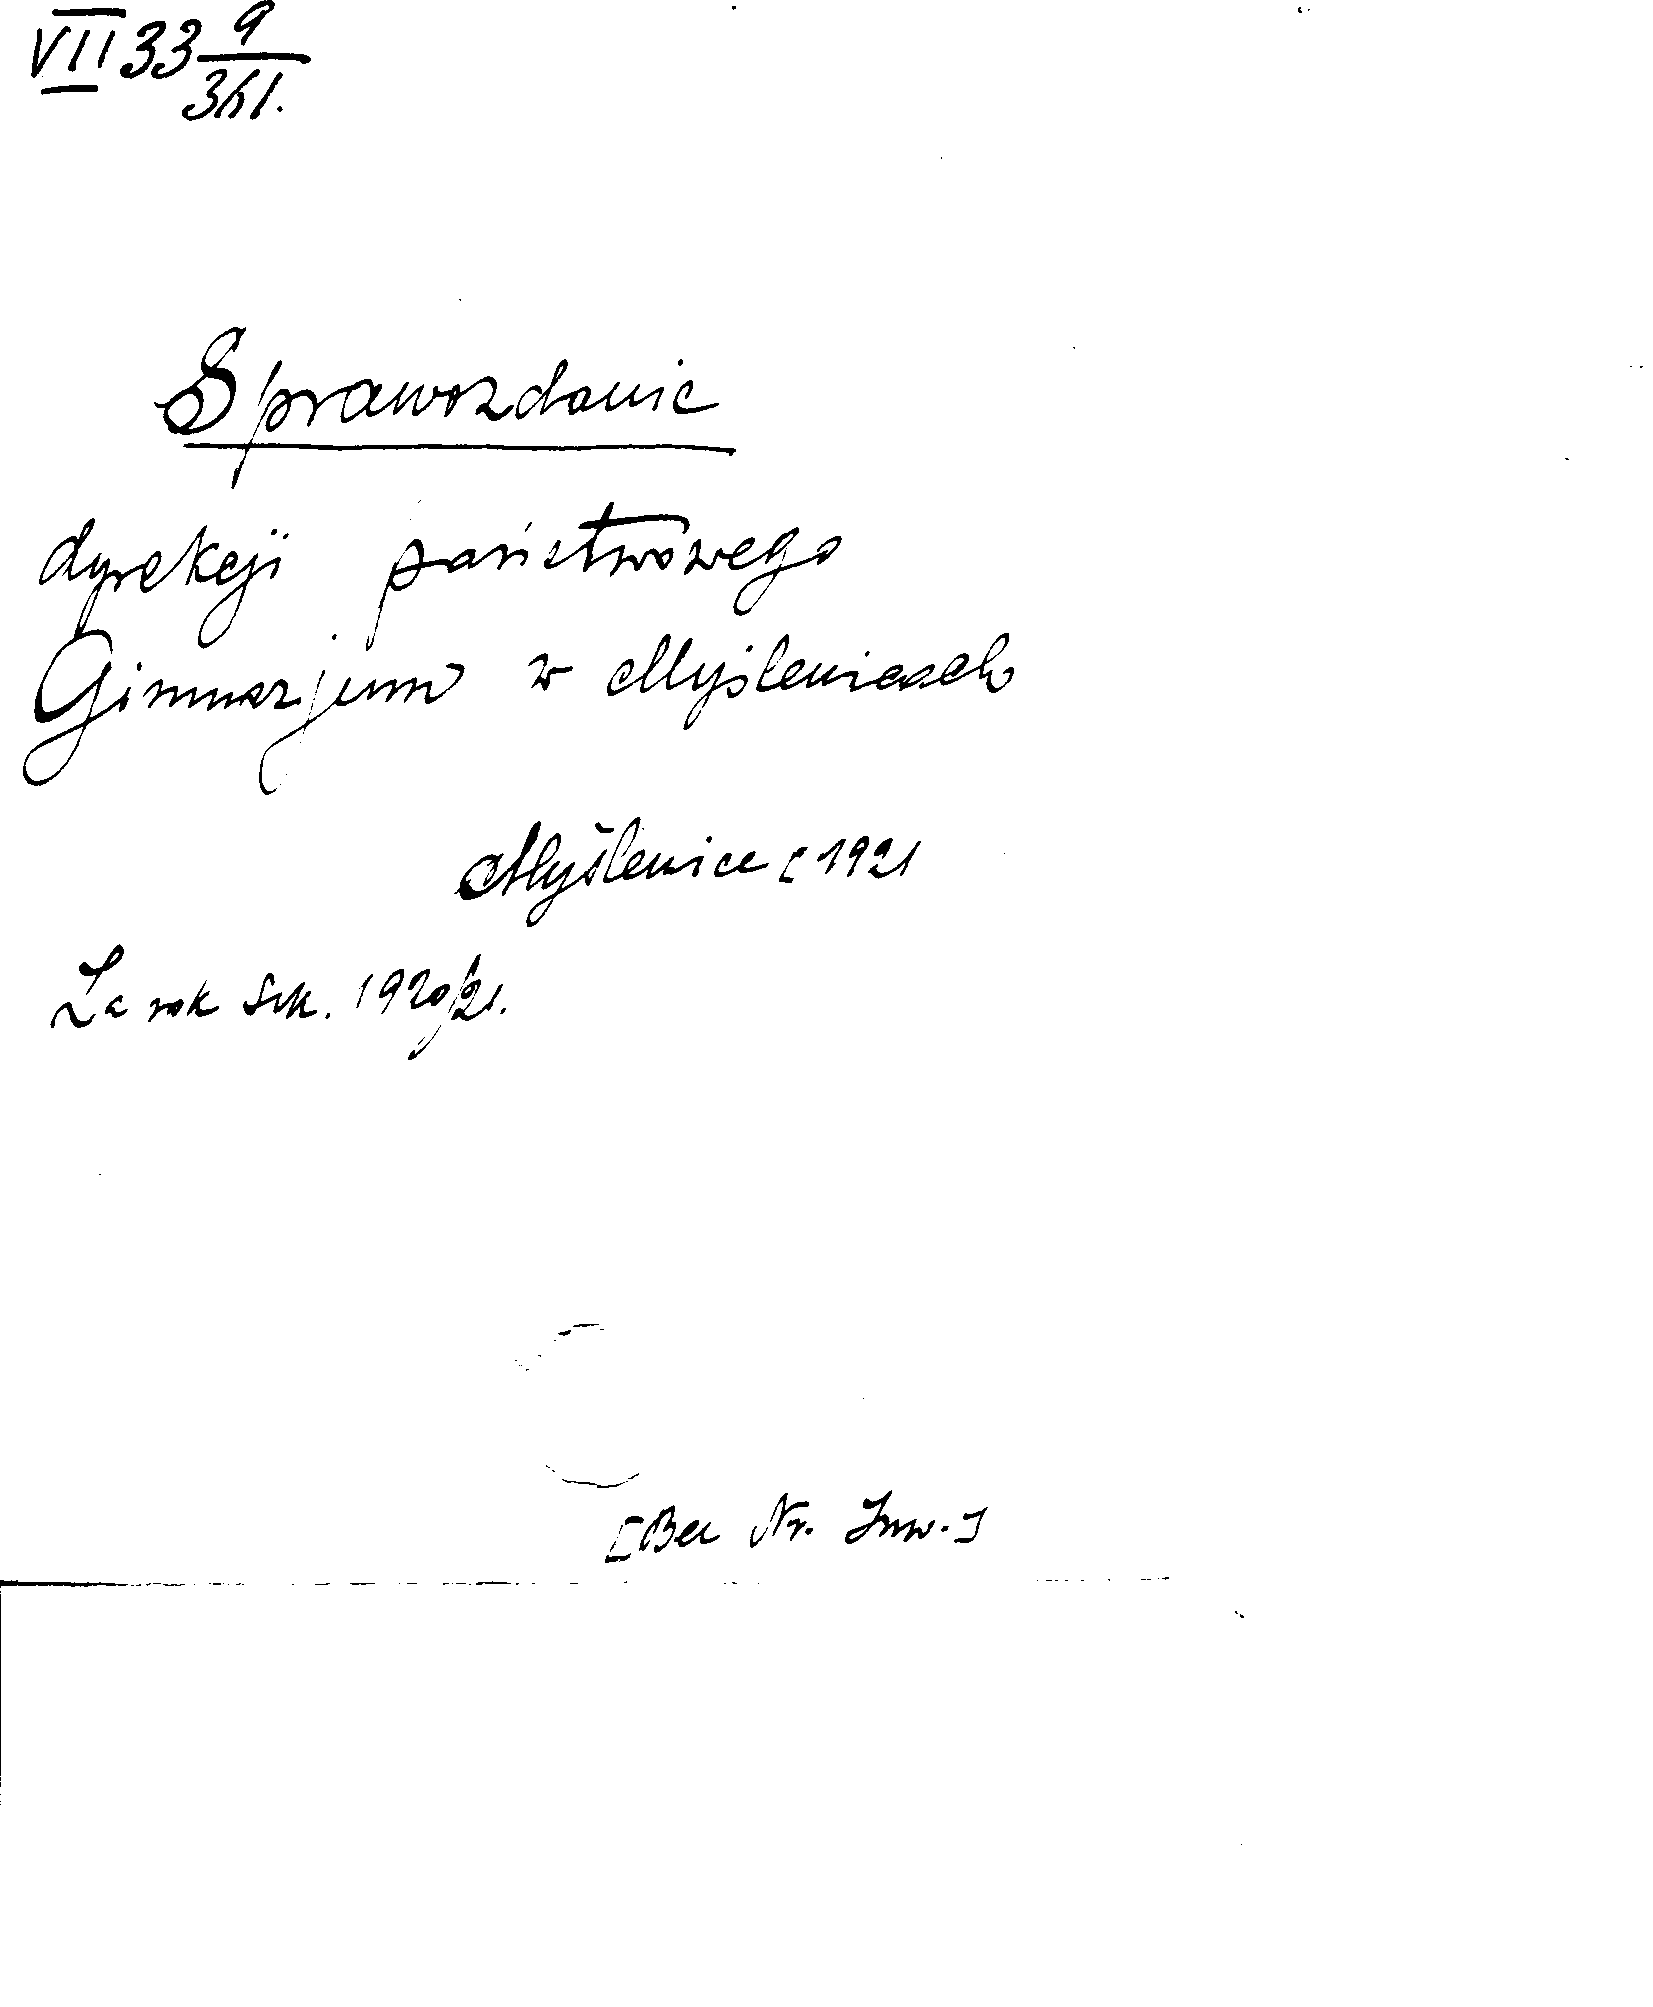 VII 33 9
Sprawozdanie
dyrekcji państwowego
Gimnazjum w Myślenicach
Myślenice [1921
Za rok szk. 1920/21.
[Bez Nr. Inw.]